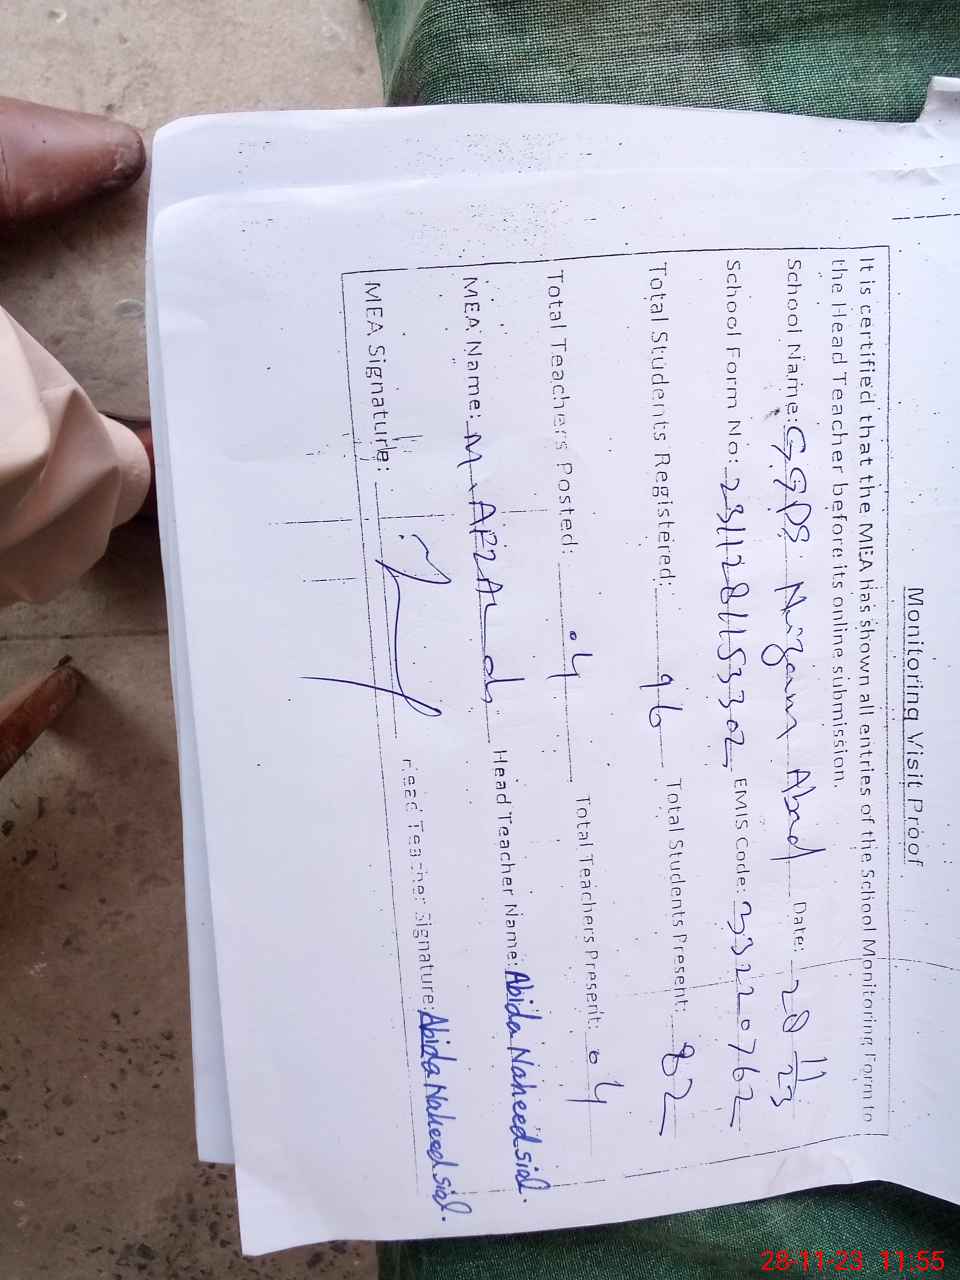 Monitoring Visit Proof
It is certified that the MEA has shown all entries of the School Monitoring Form to
the Head Teacher before its online submission.
School Name: GGPS Nizam Abad Date: 28/11/23
School Form No: 231128115302 EMIS Code: 33220762
Total Students Registered: 96 Total Students Present: 82
Total Teachers Posted: 04 Total Teachers Present: 04
MEA Name: M. AFZAL Head Teacher Name: Abida Naheed sial.
MEA Signature: Head Teacher Signature: Abida Naheed sial.
28-11-23 11:55